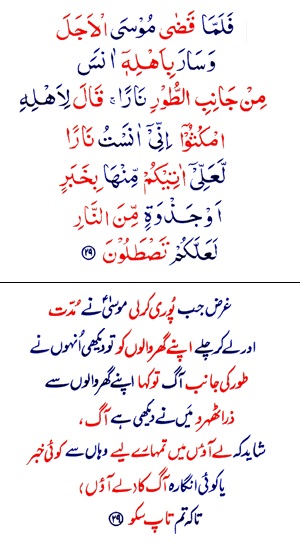 فَلَمَّا قَضٰى مُوْسَى الْاَجَلَ
وَسَارَ بِاَهْلِهٖۤ اٰنَسَ
مِنْ جَانِبِ الطُّوْرِ نَارًا ۚ قَالَ لِاَهْلِهِ
امْكُثُوْۤا اِنِّیْۤ اٰنَسْتُ نَارًا
لَّعَلِّیْۤ اٰتِیْكُمْ مِّنْهَا بِخَبَرٍ
اَوْ جَذْوَةٍ مِّنَ النَّارِ
لَعَلَّكُمْ تَصْطَلُوْنَ ﴿۲۹﴾
غرض جب پُوری کرلی موسیٰؑ نے مُدّت
اور لے کر چلے اپنے گھر والوں کو تو دیکھی اُنہوں نے
طور کی جانب آگ تو کہا اپنے گھر والوں سے
ذرا ٹھہرو میں نے دیکھی ہے آگ،
شاید کہ لے آؤں میں تمہارے لیے وہاں سے کوئی خبر
یا کوئی انگارہ آگ کا (لے آؤں)
تاکہ تم تاپ سکو ﴿۲۹﴾